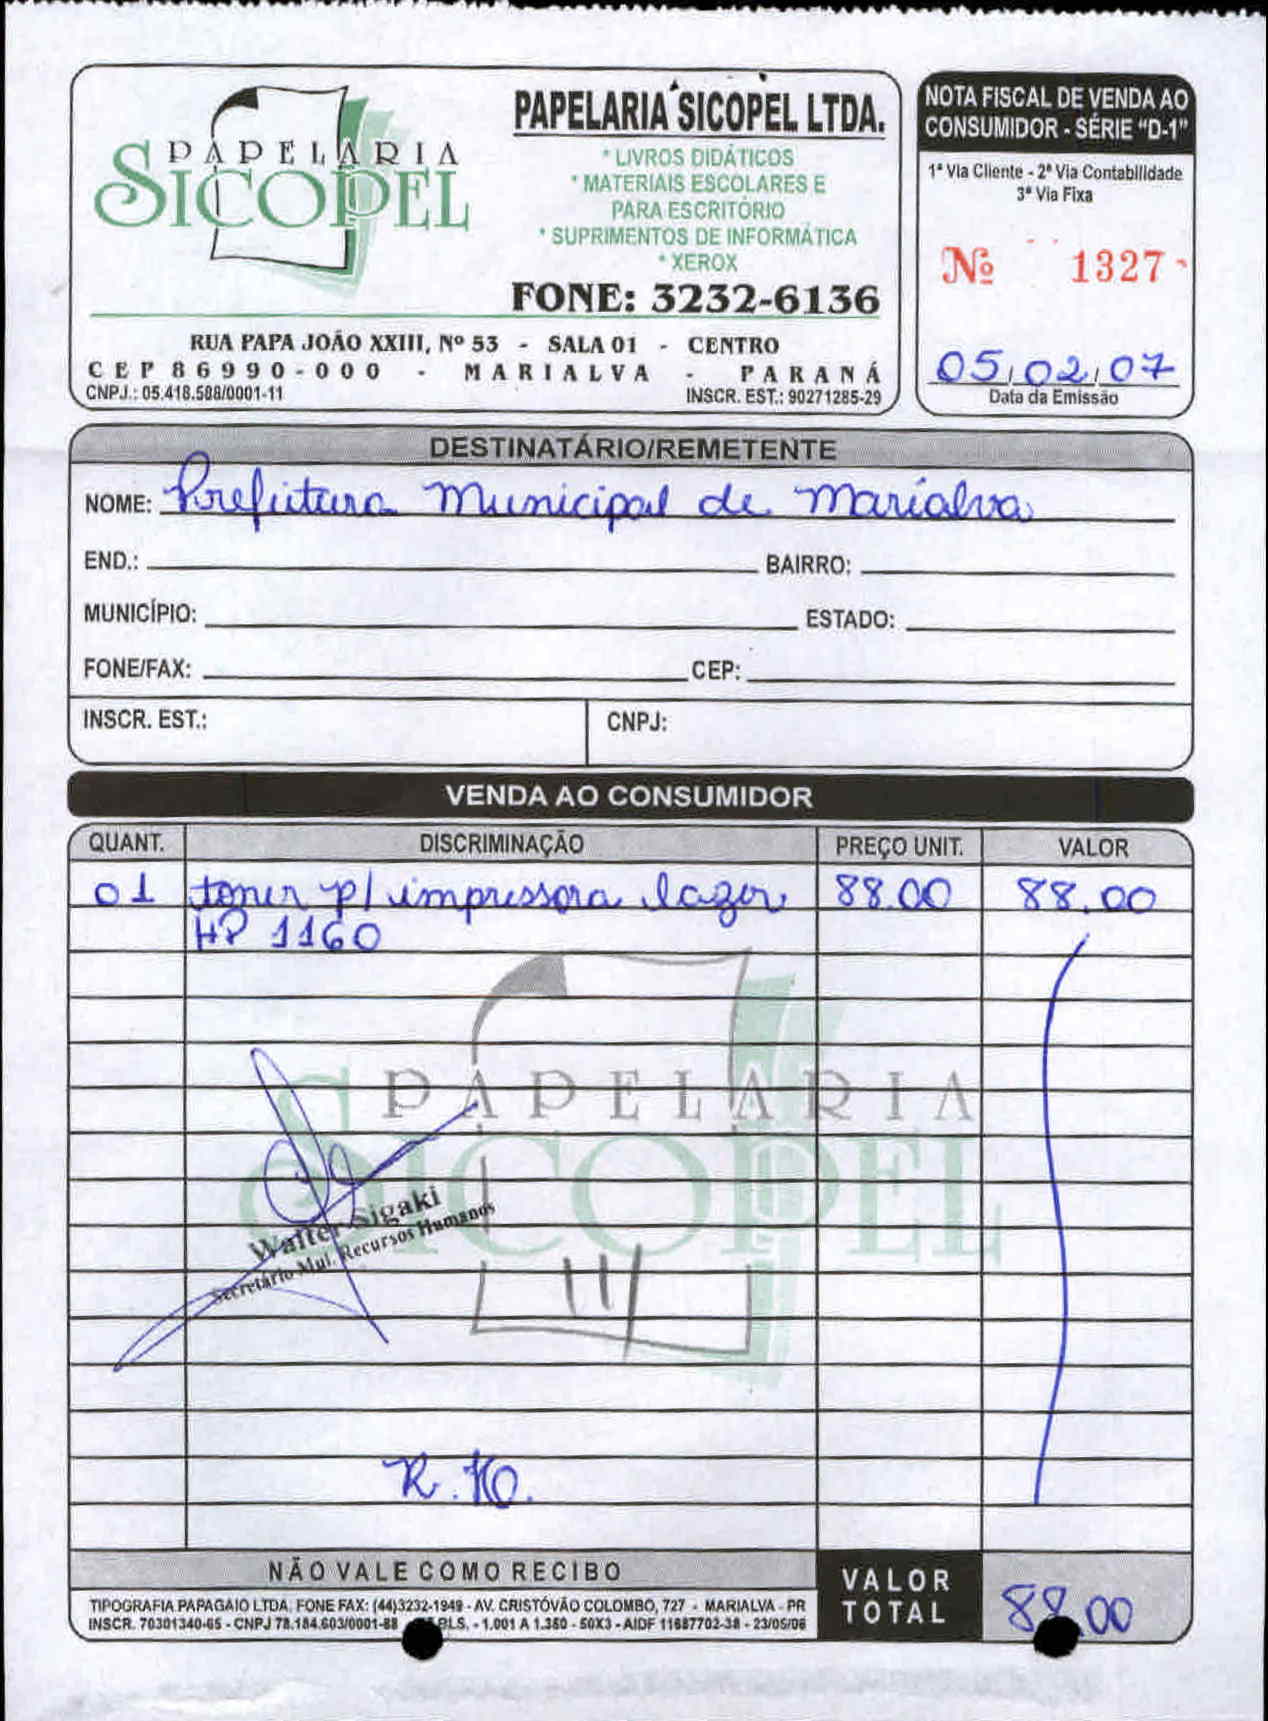 PAPELARIA
SICOPEL
PAPELARIA SICOPEL LTDA.
* LIVROS DIDÁTICOS
* MATERIAIS ESCOLARES E
PARA ESCRITÓRIO
* SUPRIMENTOS DE INFORMÁTICA
* XEROX
FONE: 3232-6136
RUA PAPA JOÃO XXIII, Nº 53 - SALA 01 - CENTRO
CEP 86990-000 - MARIALVA - PARANÁ
CNPJ.: 05.418.588/0001-11 INSCR. EST.: 90271285-29
NOTA FISCAL DE VENDA AO
CONSUMIDOR - SÉRIE "D-1"
1ª Via Cliente - 2ª Via Contabilidade
3ª Via Fixa
Nº 1327
05/02/07
Data da Emissão
DESTINATÁRIO/REMETENTE
NOME: Prefeitura Municipal de Marialva
END.: BAIRRO:
MUNICÍPIO: ESTADO:
FONE/FAX: CEP:
INSCR. EST.: CNPJ:
VENDA AO CONSUMIDOR
QUANT. DISCRIMINAÇÃO PREÇO UNIT. VALOR
01 toner p/ impressora lazer 88.00 88.00
HP 1160
PAPELARIA
SICOPEL
Walter Sigaki
Secretário Mul. Recursos Humanos
R.H.
NÃO VALE COMO RECIBO
VALOR
TOTAL
88.00
TIPOGRAFIA PAPAGAIO LTDA. FONE FAX: (44)3232-1949 - AV. CRISTÓVÃO COLOMBO, 727 - MARIALVA - PR
INSCR. 70301340-65 - CNPJ 78.184.603/0001-88 BLS. - 1.001 A 1.350 - 50X3 - AIDF 11687702-38 - 23/05/06